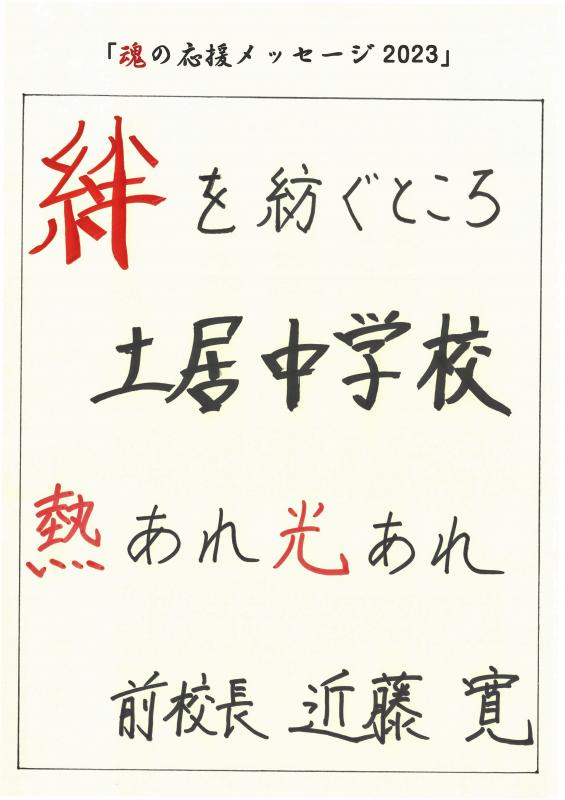 「魂の応援メッセージ2023」
絆を紡ぐところ
土居中学校
熱あれ光あれ
前校長 近藤 寛